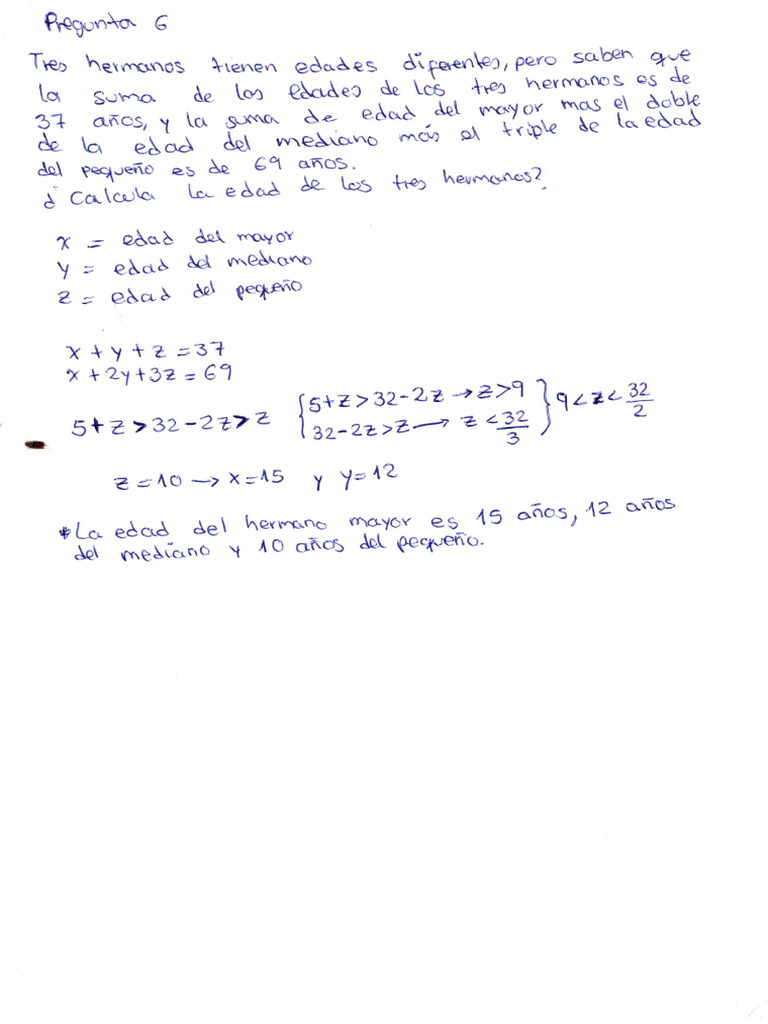 Pregunta 6
Tres hermanos tienen edades diferentes, pero saben que
la suma de las edades de los tres hermanos es de
37 años, y la suma de edad del mayor mas el doble
de la edad del mediano más el triple de la edad
del pequeño es de 69 años.
¿ Calcula la edad de los tres hermanos?
x = edad del mayor
y = edad del mediano
z = edad del pequeño
x + y + z = 37
x + 2y + 3z = 69
5 + z > 32 - 2z > z { 5 + z > 32 - 2z → z > 9
32 - 2z > z → z < 32/3 } 9 < z < 32/2
z = 10 → x = 15 y y = 12
* La edad del hermano mayor es 15 años, 12 años
del mediano y 10 años del pequeño.